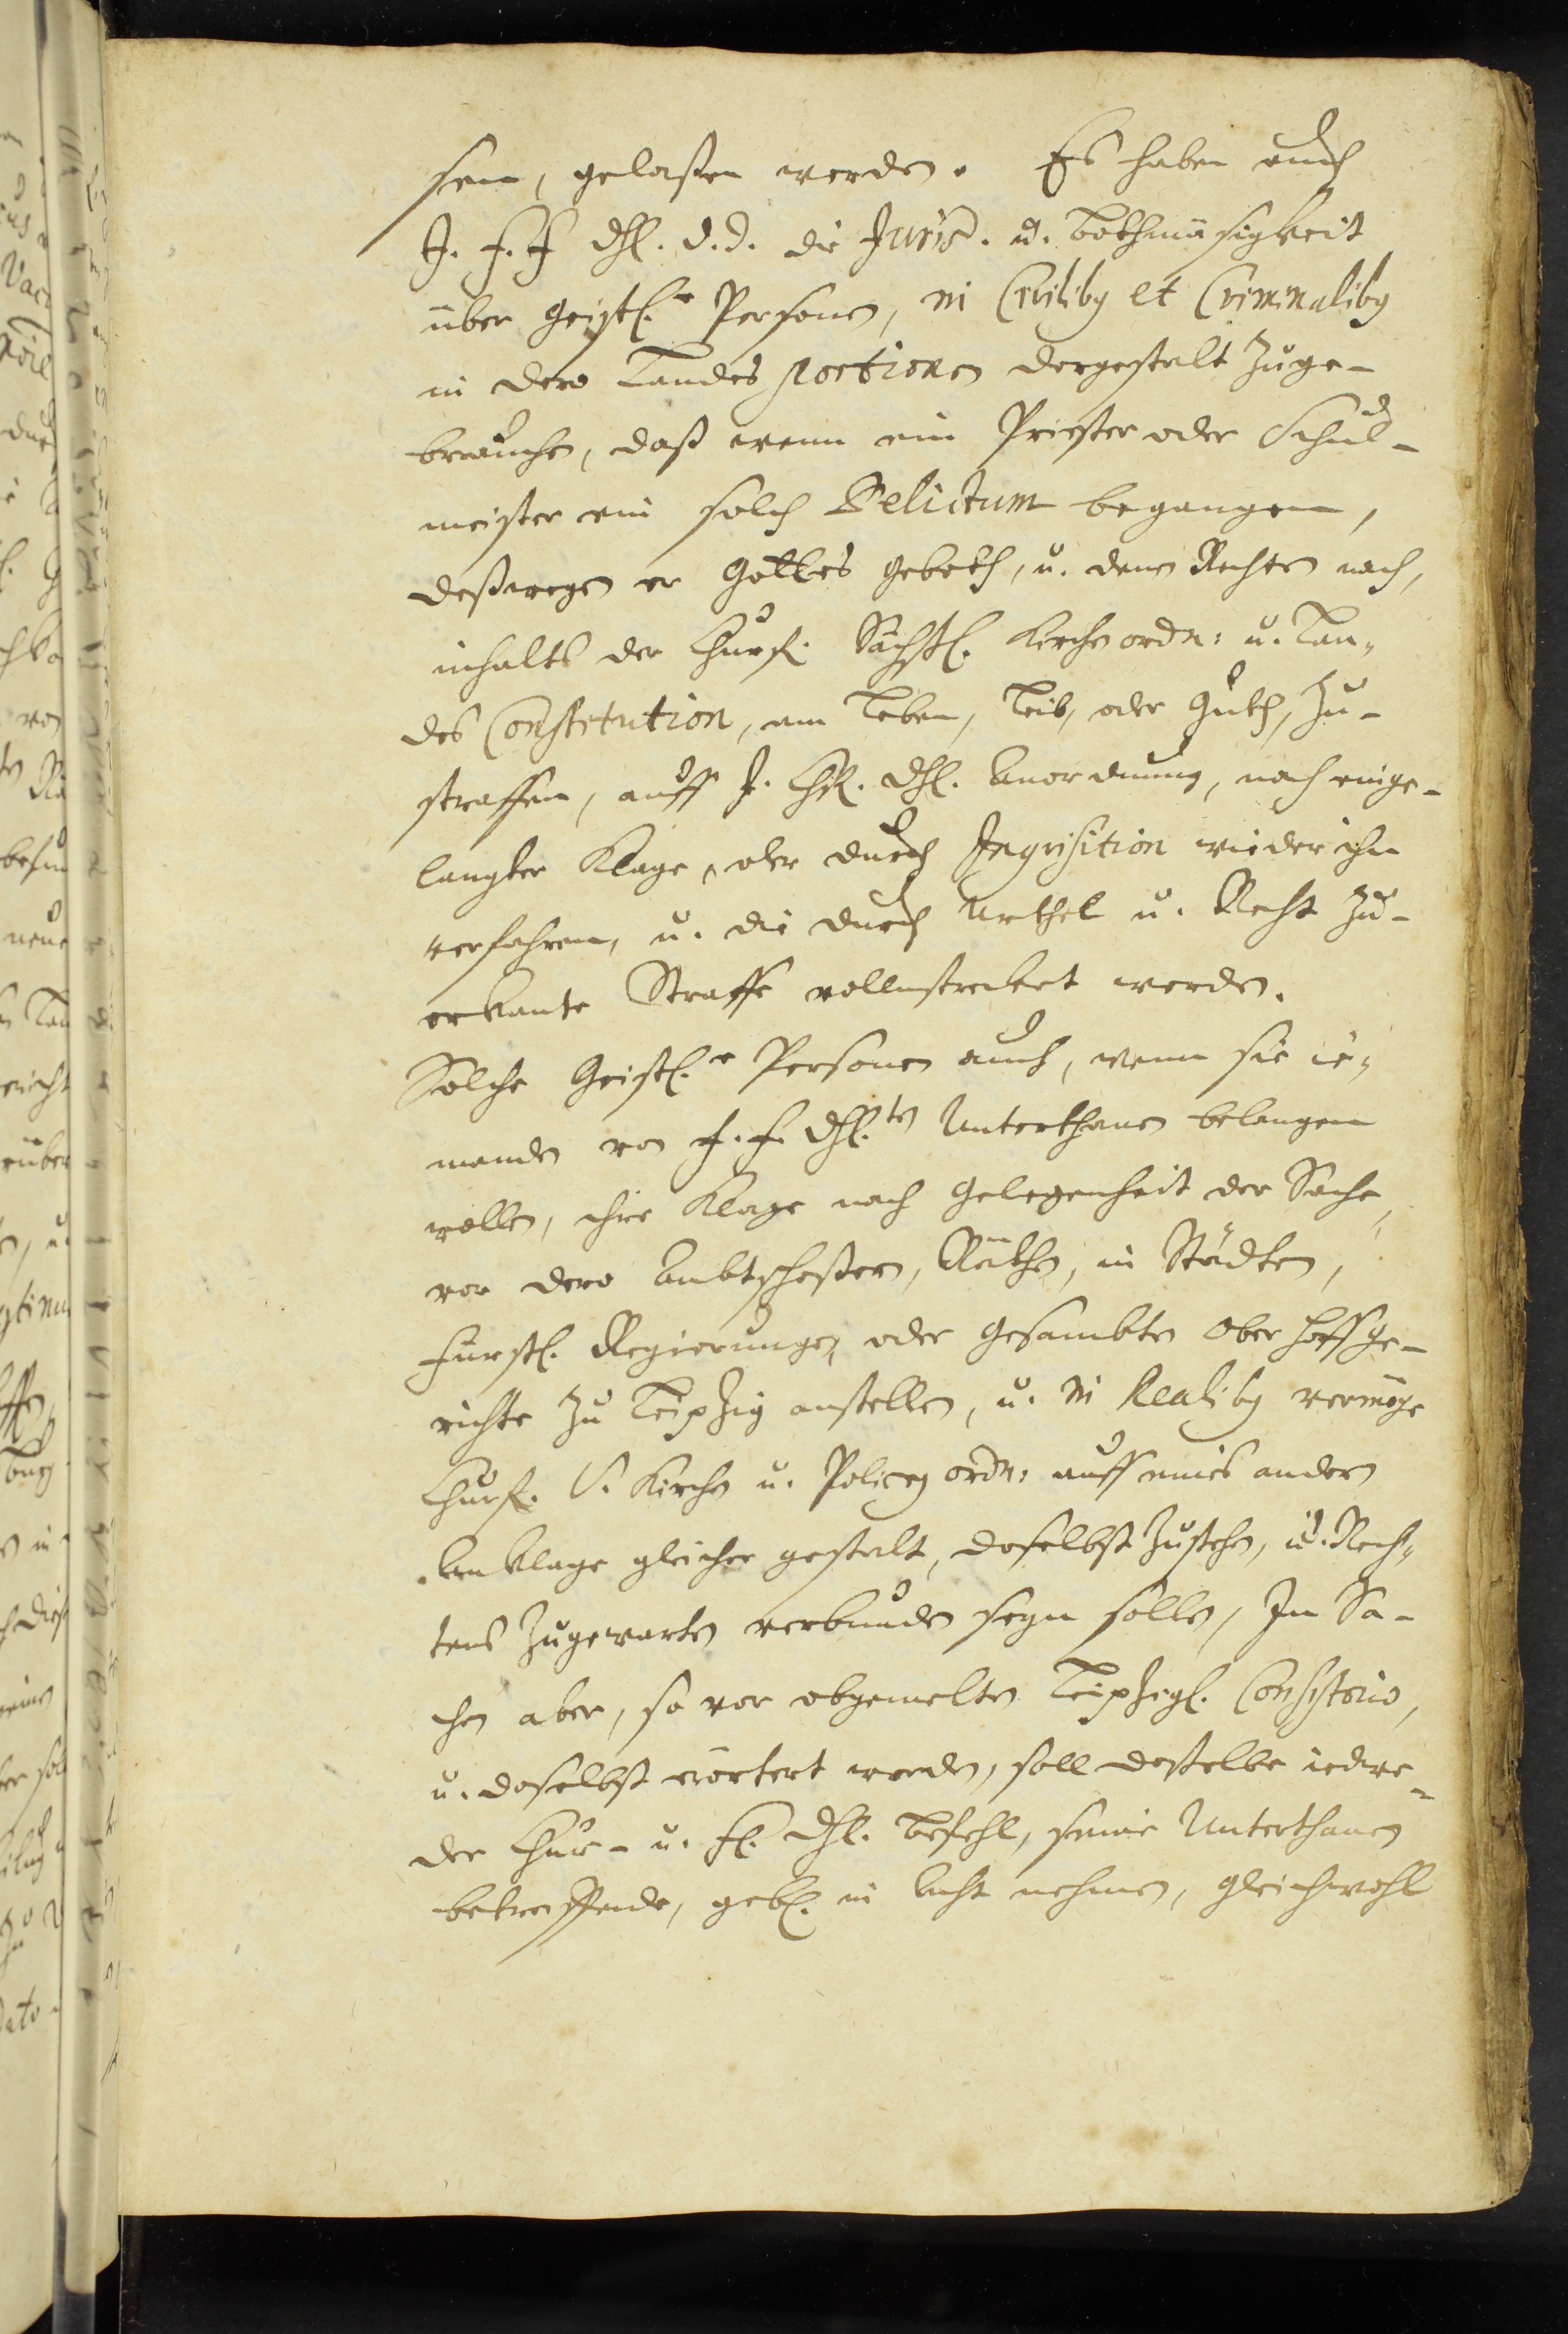 sen, gelaßen werden. Es haben auch
J. F. F dhl. d. d. die Juris. u. Bothmäsigkeit
über Geistl.e Personen, in Civilibq et Criminalibq
in dero Landes portionen dergestalt zuge-
brauchen, daß wenn ein Priester oder Schul-
meister ein solch Delictum begangen,
deßwegen er Gottes geboth, u. denen Rechten nach,
inhalts der Churf. Sächßl. Kirchen ordn: u. Lan-
des Constitution, am Leben, Leib, oder Guth, zu-
straffen, auff J. Chfl. dhl. Anordnung, nach einge-
langter Klage, oder durch Inqvisition wieder ihn
verfahren, u. die durch Urthel u. Recht zu-
erkante Straffe vollnstrecket werden.
Solche Geistl.e Personen auch, wenn sie ie-
manden von J. F. dhl.ten Unterthanen belangen
wollen, ihre Klage nach gelegenheit der Sache,
vor dero Ambtschoßern, Räthen, in Städten,
Fürstl. Regierungen, oder Gesambten Ober hoffge-
richte zu Leipzig anstellen, u. in Realibq vermöge
Churf. S. Kirchen u. Policey ordn: auff eines andern
Anklage gleicher gestalt, daselbst zustehen, u. Rech-
tens zugewarten verbunden seyn sollen, In Sa-
chen aber, so vor obgemelten Leipzigl. Consistorio,
u. daselbst erörtert werden, soll daßelbe iedwe-
der Chur- u. Fl. dhl. Befehl, seine Unterthanen
betreffende, gebl. in Acht nehmen, gleichwohl